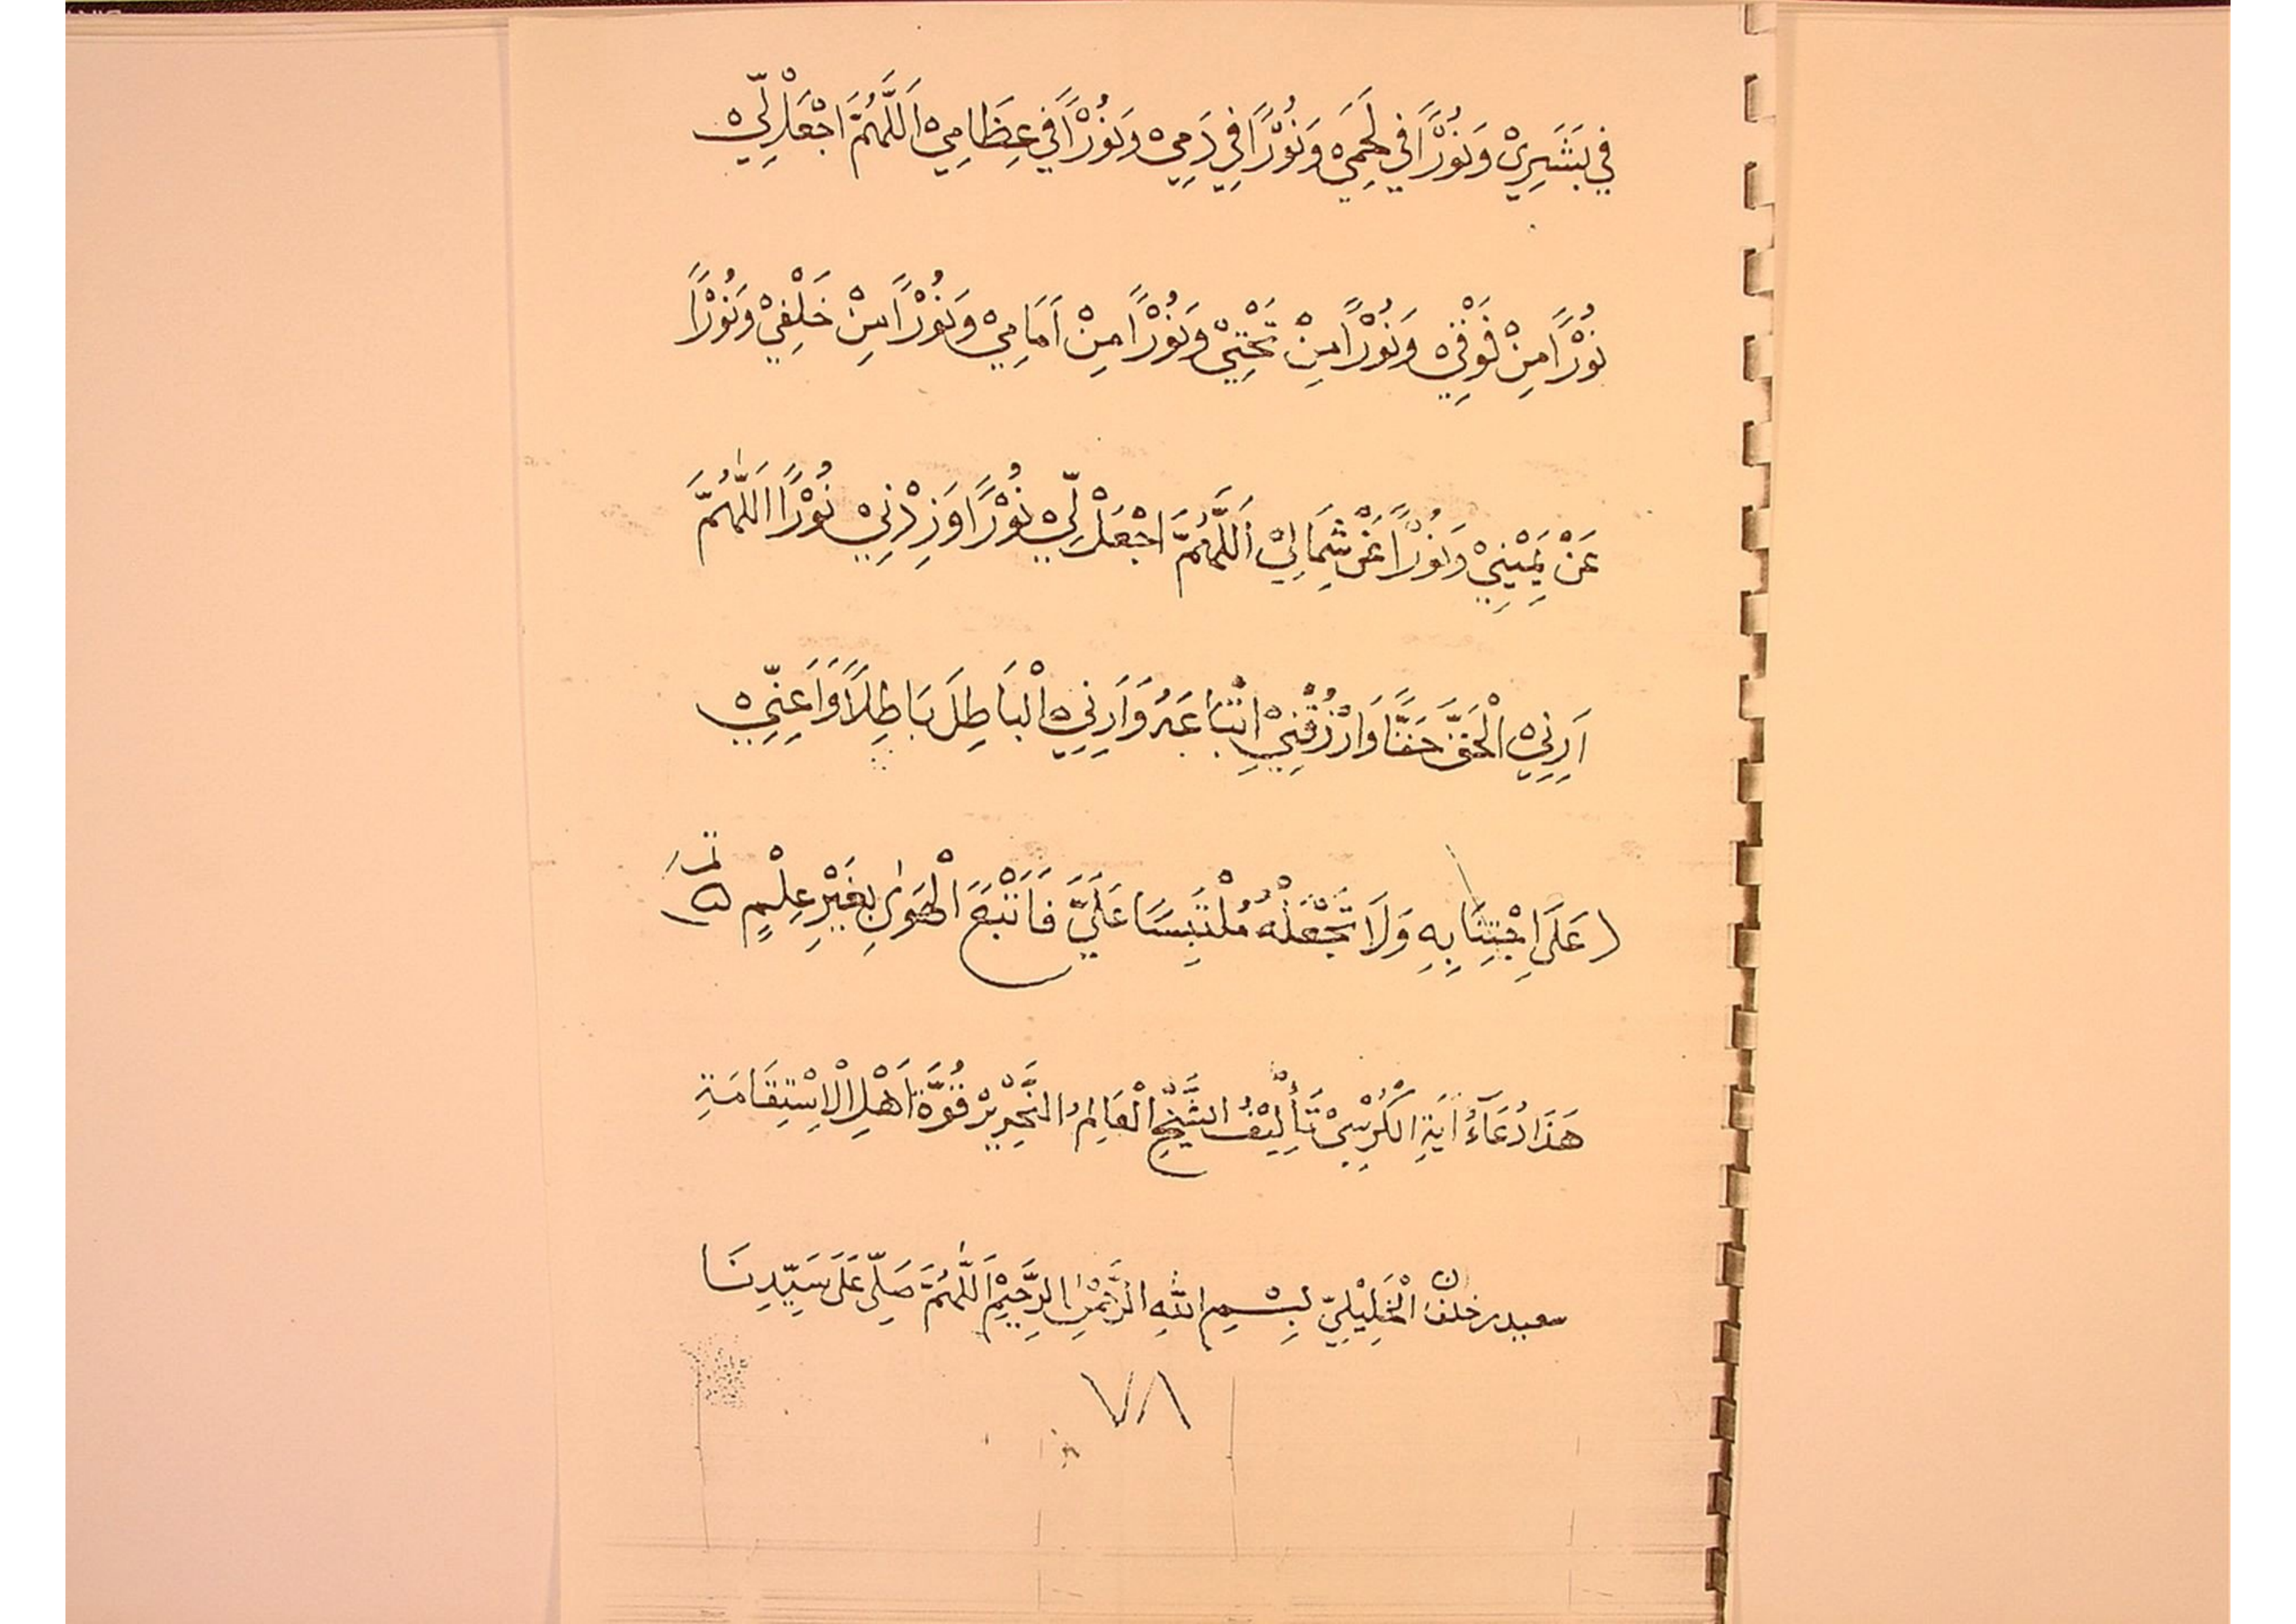 فِي بَشَرِيْ وَنُوْرًا فِي لَحْمِيْ وَنُوْرًا فِيْ دَمِيْ وَنُوْرًا فِي عِظَامِيْ اَللَّهُمَّ اجْعَلْ لِّيْ
نُوْرًا مِنْ فَوْقِيْ وَنُوْرًا مِنْ تَحْتِيْ وَنُوْرًا مِنْ اَمَامِيْ وَنُوْرًا مِنْ خَلْفِيْ وَنُوْرًا
عَنْ يَمِيْنِيْ وَنُوْرًا عَنْ شِمَالِيْ اَللَّهُمَّ اجْعَلْ لِّيْ نُوْرًا وَزِدْنِيْ نُوْرًا اَللَّهُمَّ
اَرِنِيْ الْحَقَّ حَقًّا وَارْزُقْنِيْ اتْبَاعَهُ وَاَرِنِيْ الْبَاطِلَ بَاطِلًا وَاَعِنِّيْ
عَلَى اجْتِنَابِهِ وَلَا تَجْعَلْهُ مُلْتَبِسًا عَلَيَّ فَاَتْبَعَ الْهَوٰى بِغَيْرِ عِلْمٍ
هَذَا دُعَآءُ اَيَةِ الْكُرْسِيْ تَأْلِيْفُ الشَّيْخِ الْعَالِمُ النَّحْرِيْرْ قُوَّةَ اَهْلِ الْاِسْتِقَامَةِ
سعيد بن خلفان الْخَلِيْلِيّ بِسْمِ اللّٰهِ الرَّحْمٰنِ الرَّحِيْمِ اَللّٰهُمَّ صَلِّى عَلَى سَيِّدِنَا
٧٨